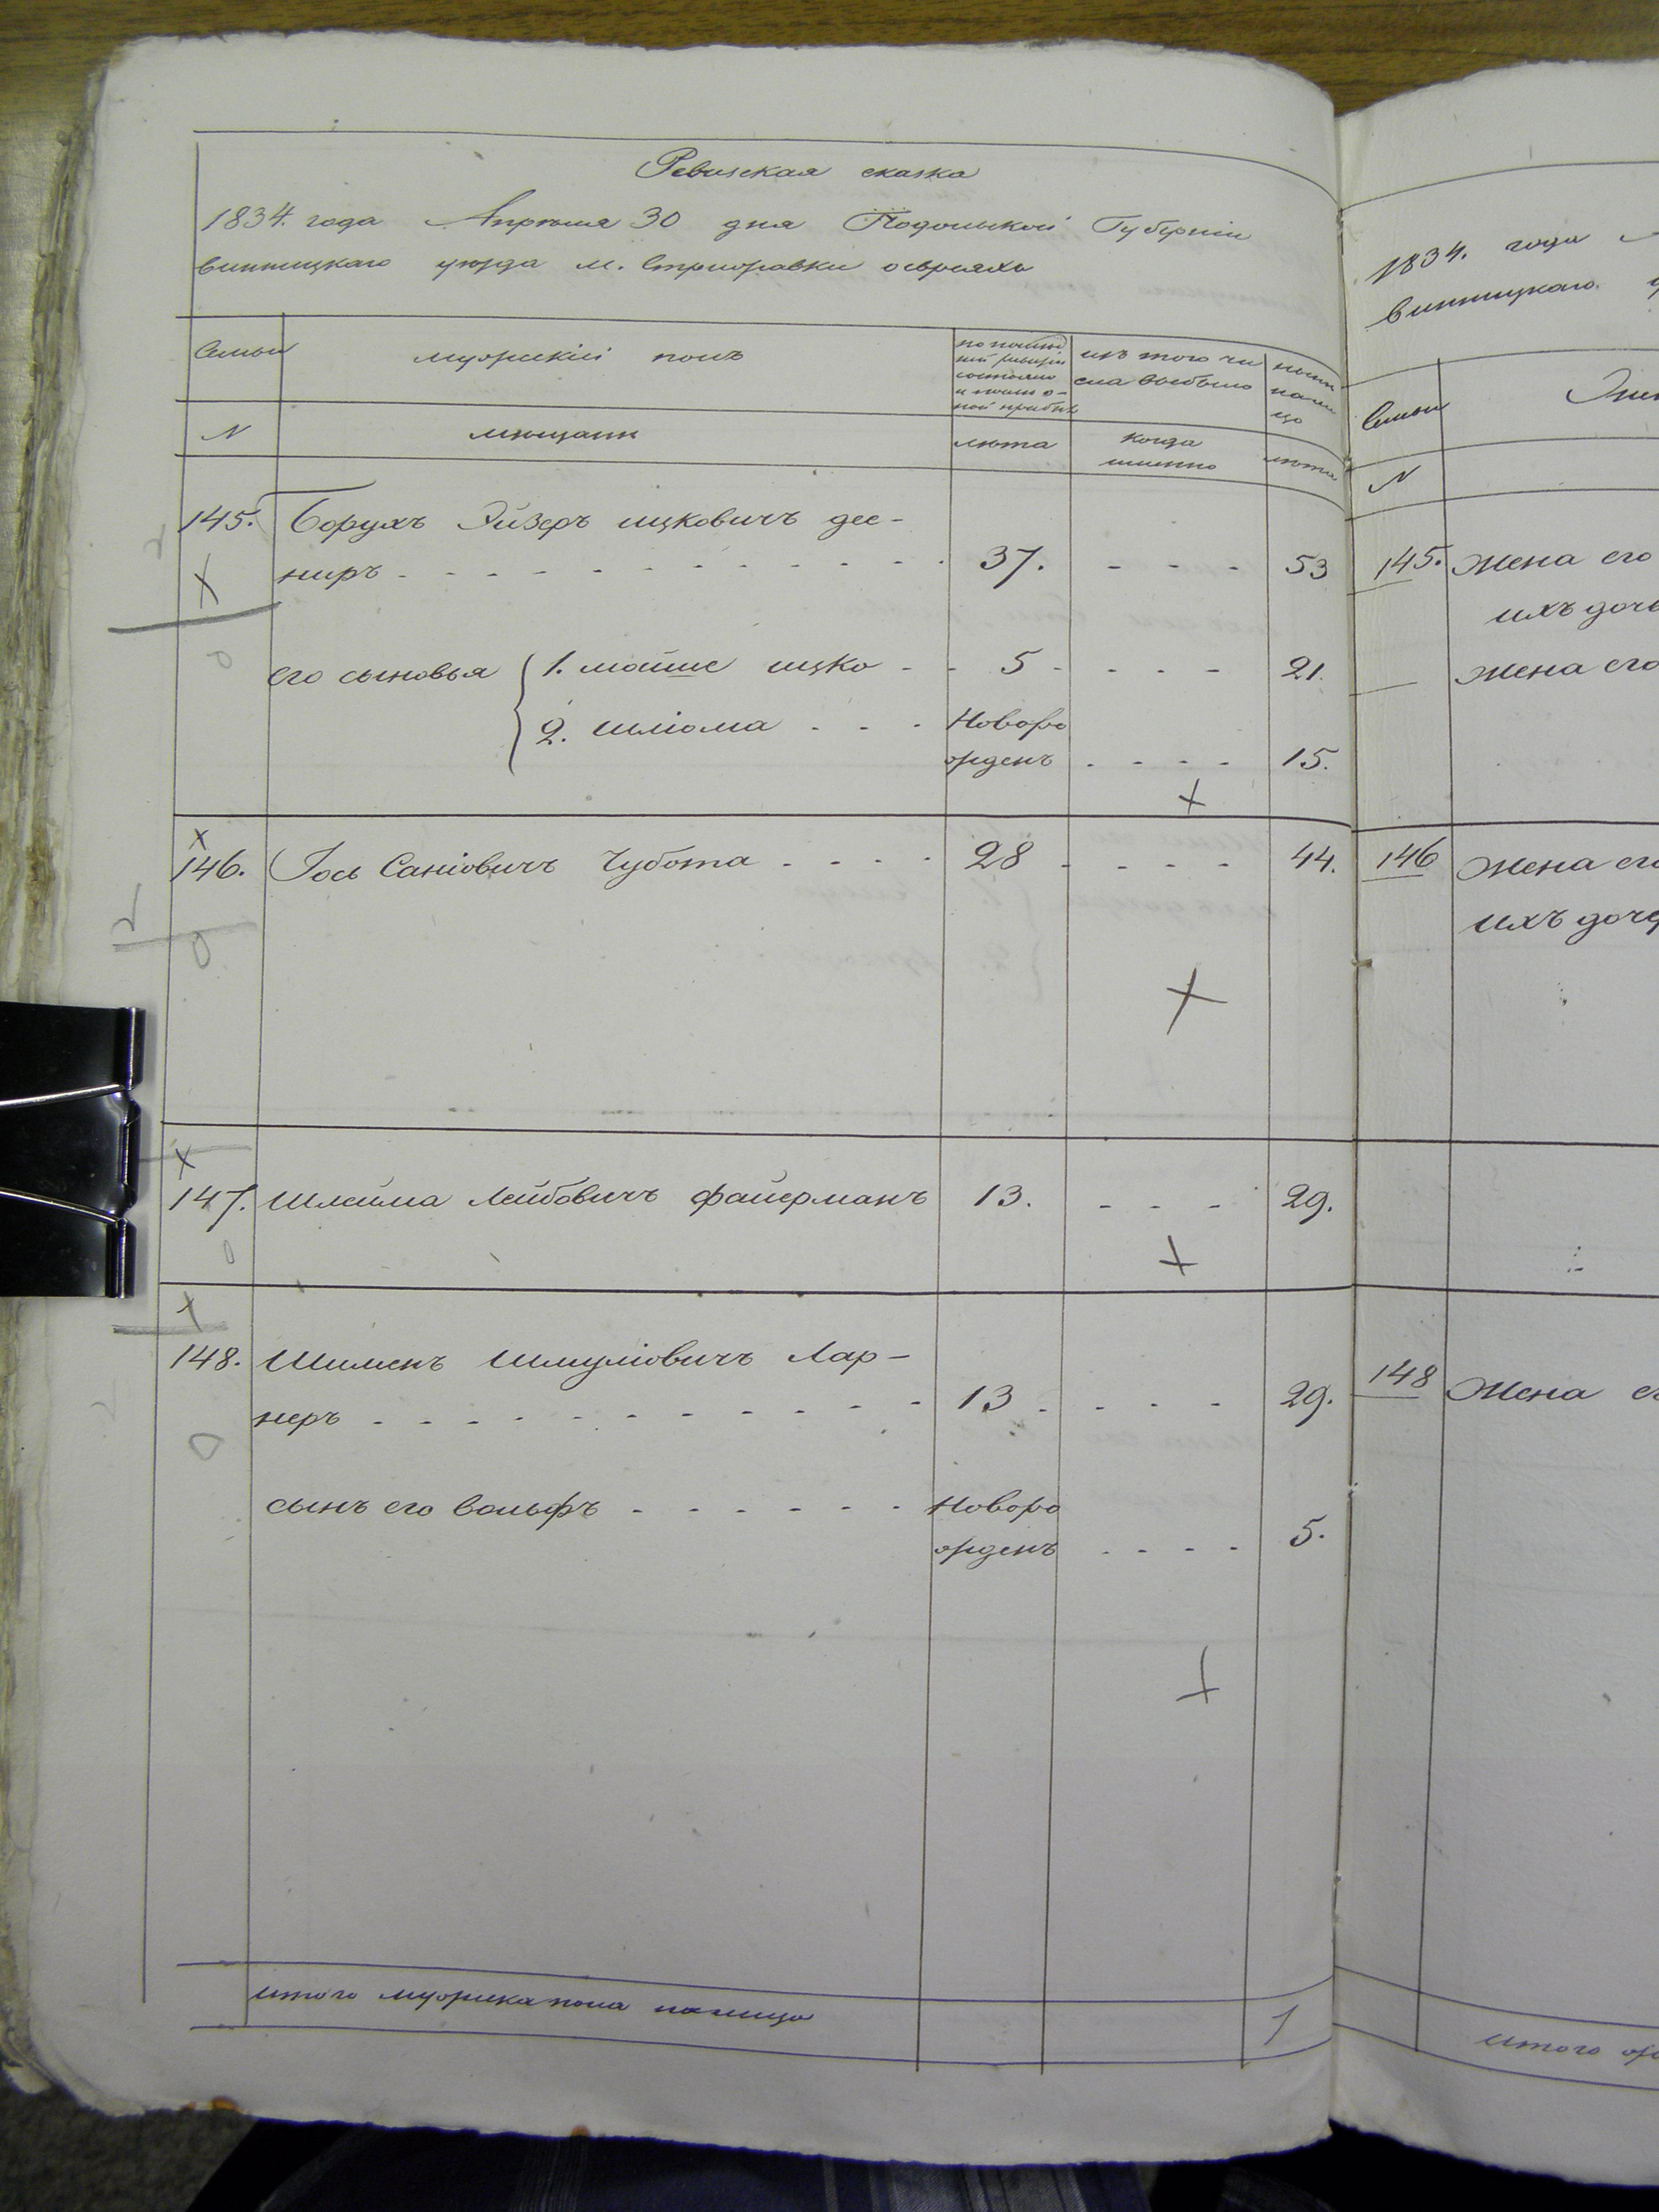 Ревизская сказка
1834. года Апреля 30 дня Подольской Губернiи
винницкаго уезда м. Стрижовки о евреяхъ
Семьи
мужескiй полъ
по послед
ней ревизiи
состояло
и после о-
ной прибы
изъ того чи
сла выбыло
ныне
на ли
цо
N
мещане
лета
когда
именно
лета
145. Борухъ Эйзеръ ицковичъ дес-
ниръ - - - 37. - - - 53
его сыновья 1. мошке ицко - - 5 - - - - 21.
2. шлiома - - - Новоро
жденъ - - - - 15.
146. Iось Санiовичъ Чубота - - - - 28 - - - - 44.
147. Шлойма Лейбовичъ файерманъ 13. - - - 29.
148. Шименъ Шмулiовичъ Лар-
неръ - - - 13 - - - - 29.
сынъ его вольфъ - - - - - - Новоро
жденъ - - - - 5.
итого мужеска пола налицо 1
1834. года
винницкаго
Семьи
N
145. Жена его
ихъ доч
жена его
146 Жена ег
ихъ доче
148 Жена е
итого